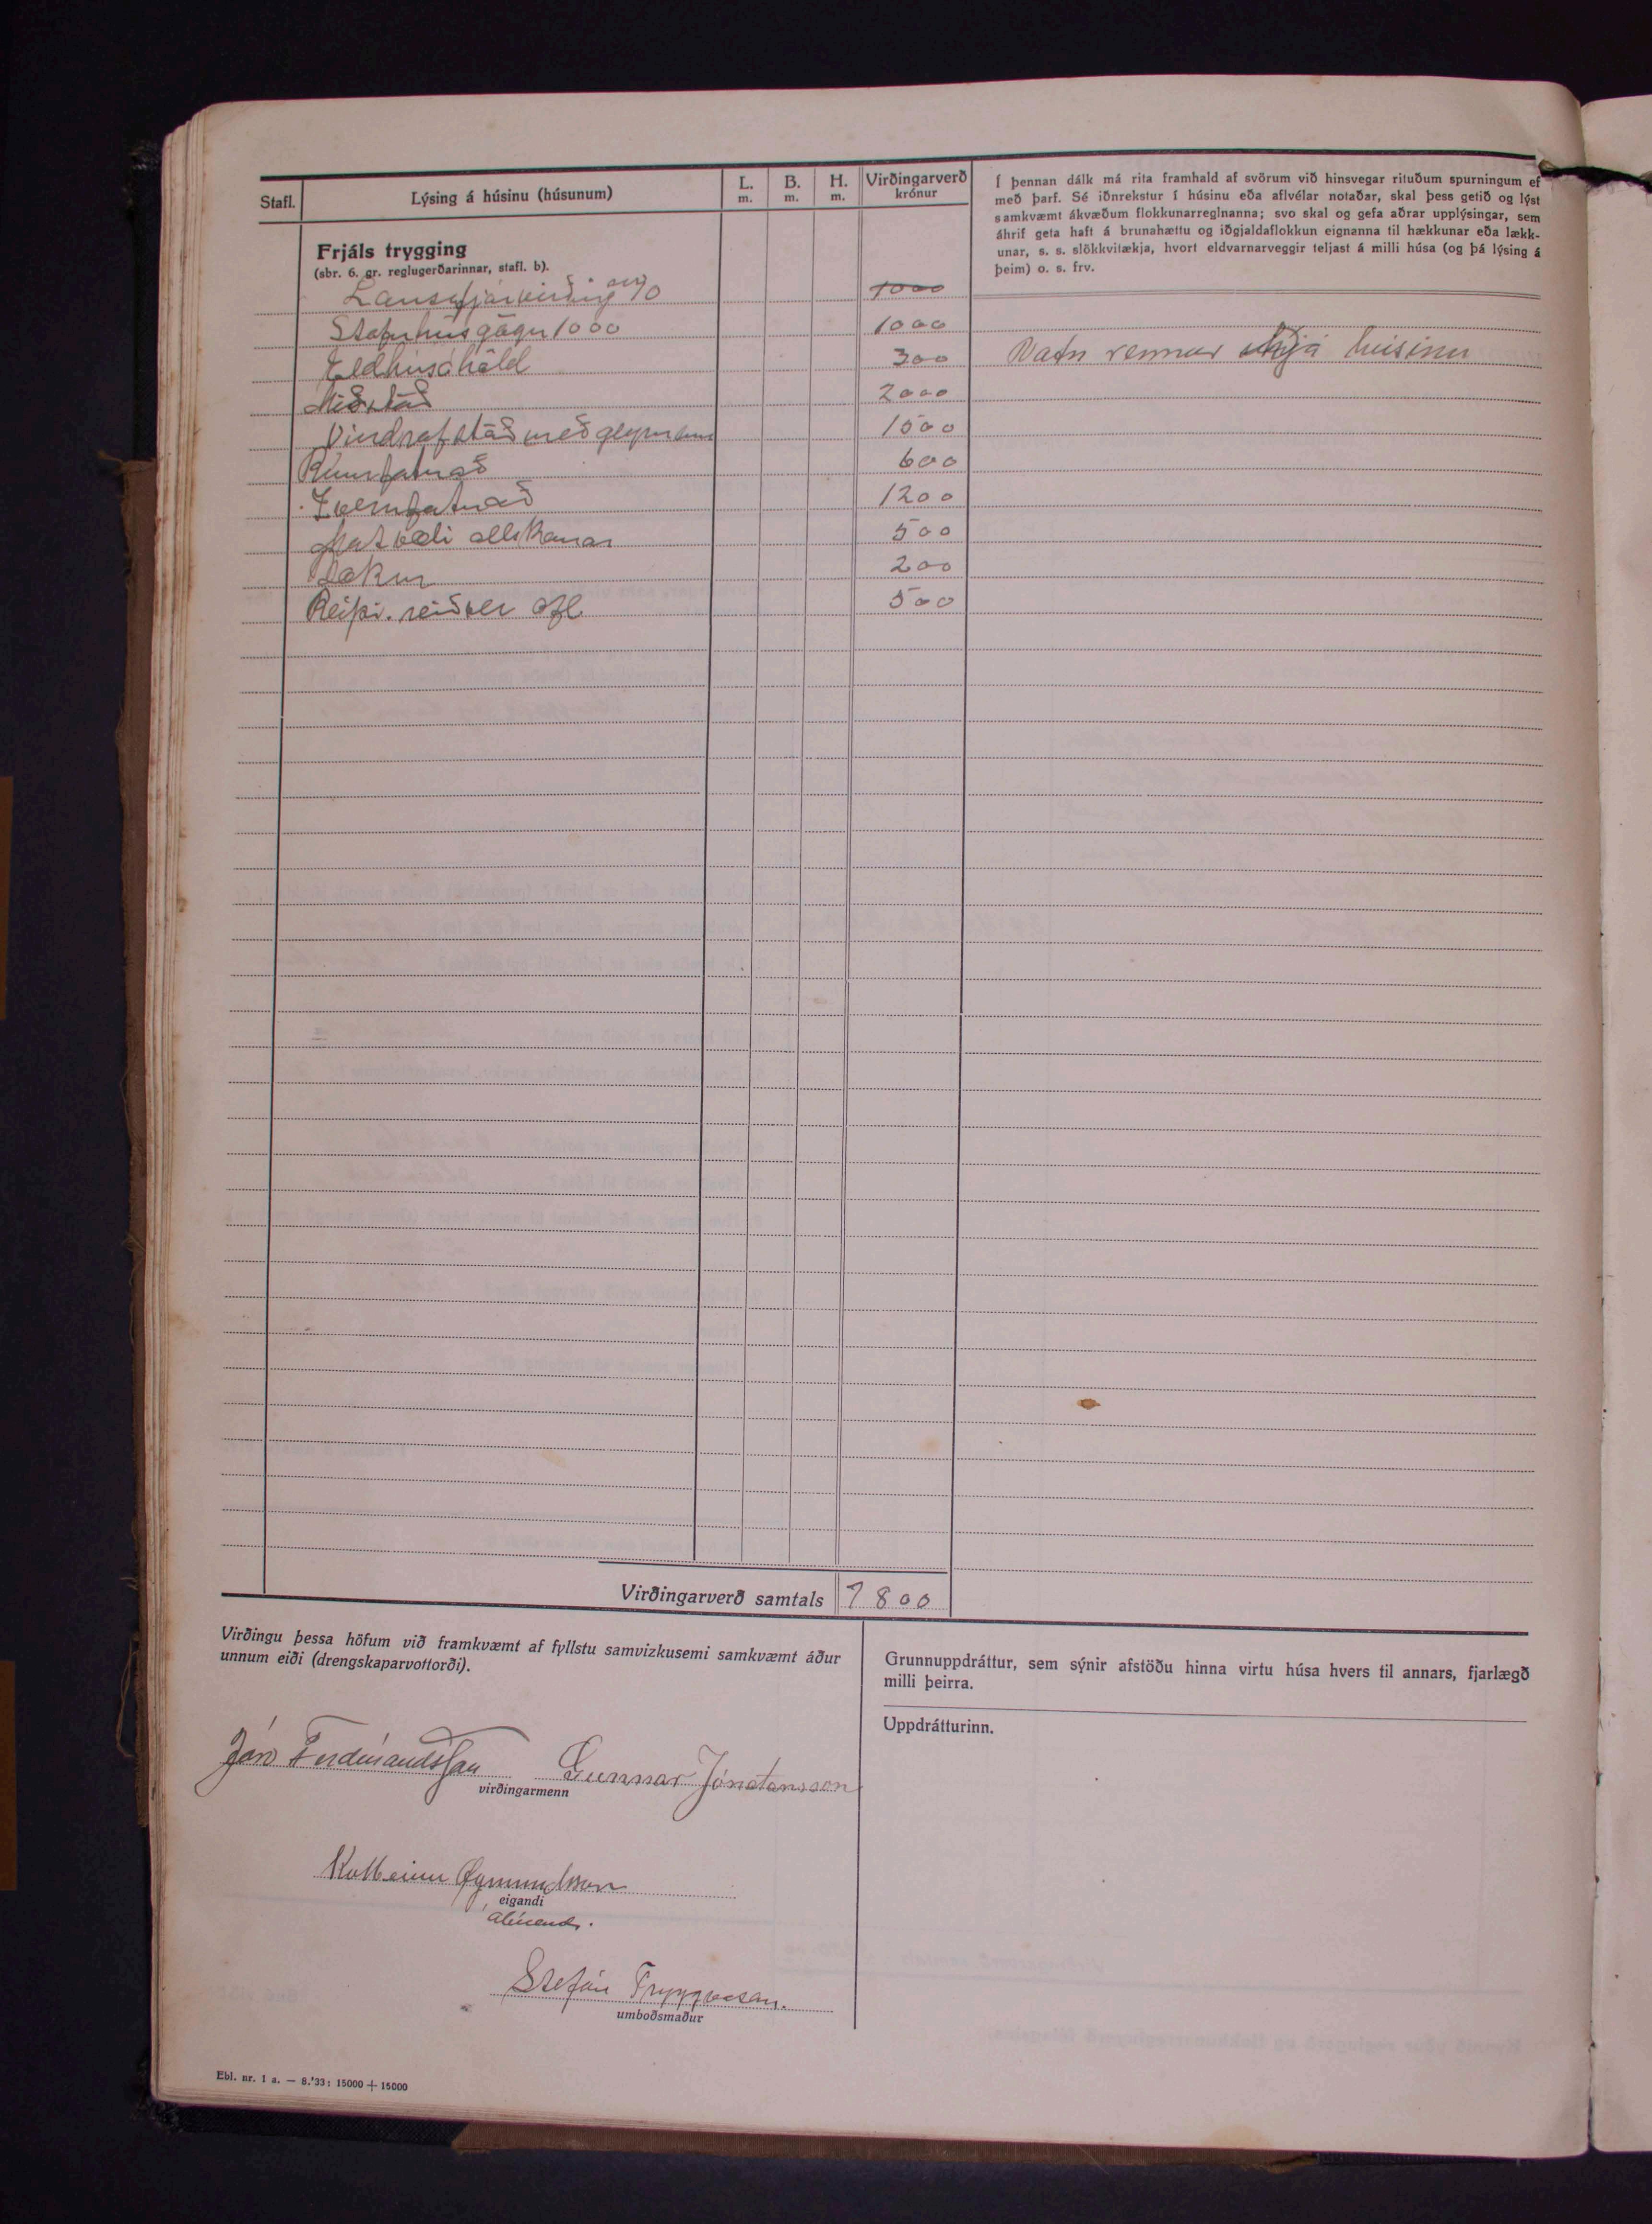 Stafl. Lýsing á húsinu (húsunum) L. m. B. m. H. m. Virðingarverð krónur
Í þennan dálk má rita framhald af svörum við hinsvegar rituðum spurningum ef
með þarf. Sé iðnrekstur í húsinu eða aflvélar notaðar, skal þess getið og lýst
samkvæmt ákvæðum flokkunarreglnanna; svo skal og gefa aðrar upplýsingar, sem
áhrif geta haft á brunahættu og iðgjaldaflokkun eignanna til hækkunar eða lækk-
unar, s. s. slökkvitækja, hvort eldvarnarveggir teljast á milli húsa (og þá lýsing á
þeim) o. s. frv.
Frjáls trygging
(sbr. 6. gr. reglugerðarinnar, stafl. b).
Lausafjárvirðing 1000
Stofuhúsgögn 1000 1000
Eldhúsáhöld 300
Vatn rennur hjá húsinu
Miðstöð 2000
Vindrafstöð með geymum 1500
Rúmfatnað 600
Íverufatnað 1200
Matvæli allskonar 500
Bækur 200
Reipi. reiðver ofl 500
Virðingarverð samtals 7800
Virðingu þessa höfum við framkvæmt af fyllstu samvizkusemi samkvæmt áður
unnum eiði (drengskaparvottorði).
Grunnuppdráttur, sem sýnir afstöðu hinna virtu húsa hvers til annars, fjarlægð
milli þeirra.
Uppdrátturinn.
Jón Ferdinandsson Gunnar Jónatansson
virðingarmenn
Kolbeinn Ögmundsson
eigandi
ábúandi.
Stefán Tryggvason.
umboðsmaður
Ebl. nr. 1 a. — 8.'33: 15000 + 15000